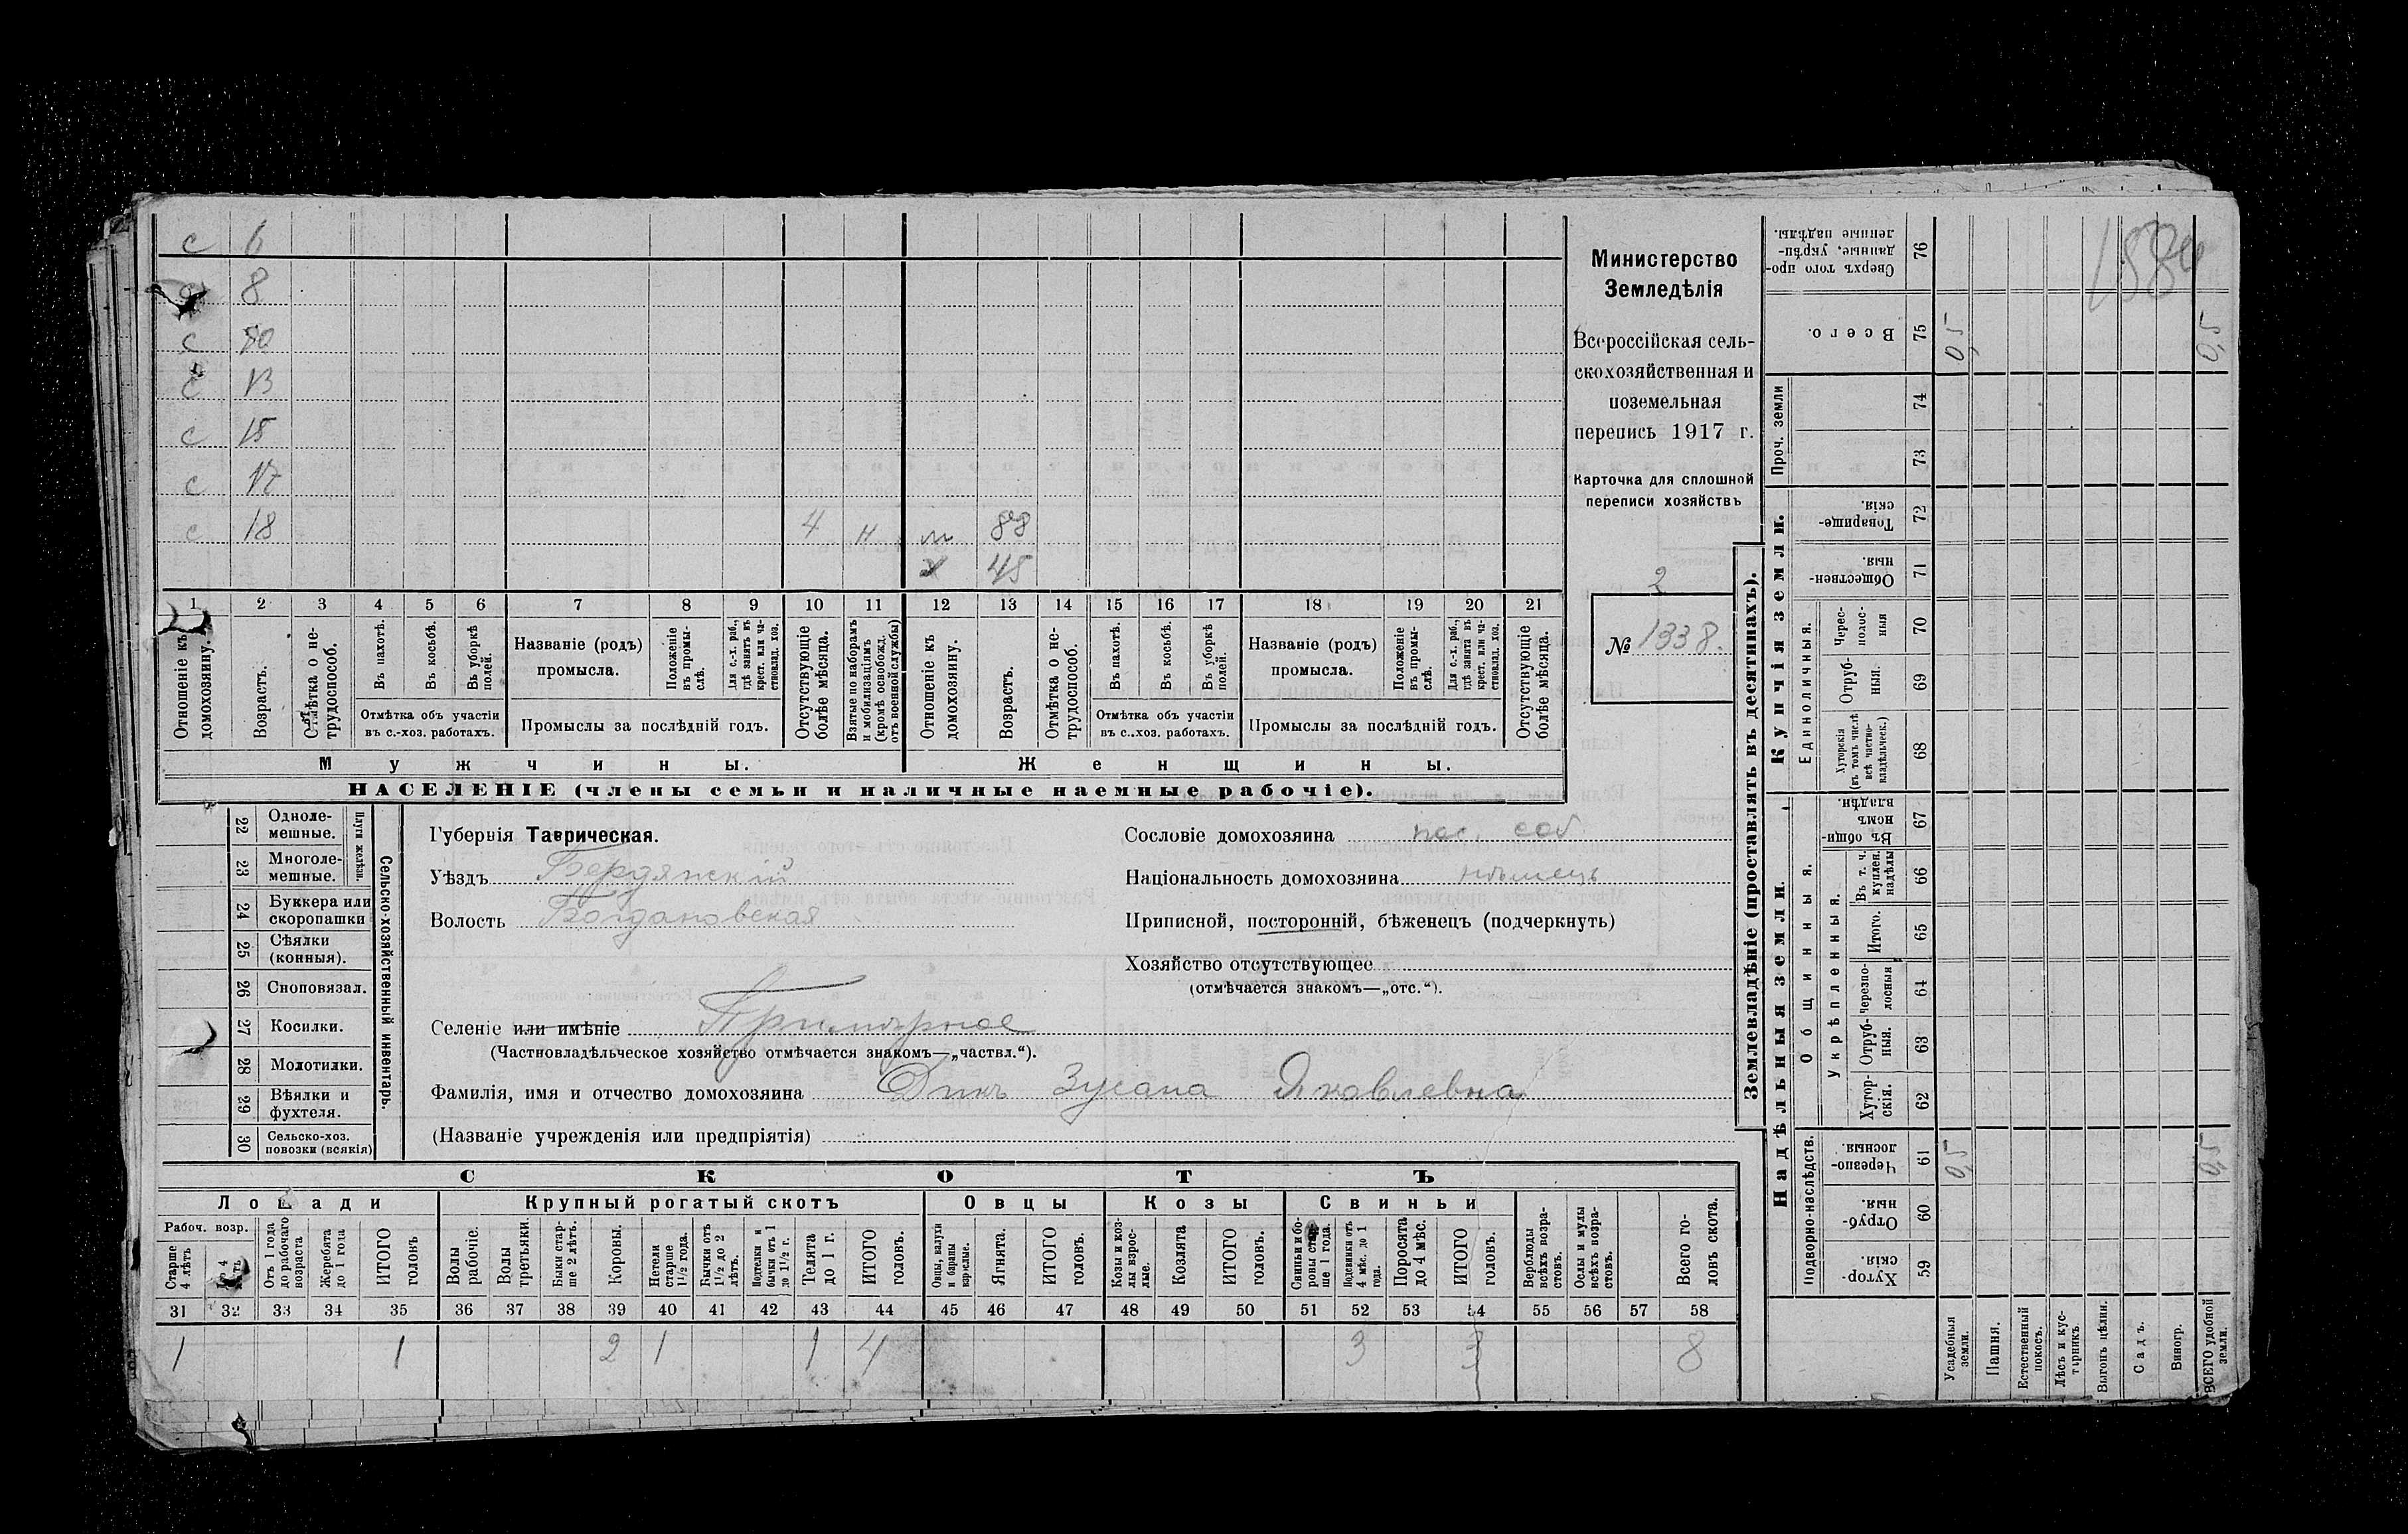 с 6
8
с 10
с 13
с 15
с 17
с 18 4 н м 88
х 45
1 2 3 4 5 6 7 8 9 10 11 12 13 14 15 16 17 18 19 20 21
Отношеніе къ домохозяину.
Возрастъ.
Отмѣтка о не-трудоспособ.
Въ пахотѣ.
Въ косьбѣ.
Въ уборкѣ полей.
Отмѣтка объ участіи
въ с.-хоз. работахъ.
Названіе (родъ)
промысла.
Положеніе въ промы-слѣ.
Для с.-х. раб., гдѣ занятъ въ крест. или ча-стновлад. хоз.
Промыслы за послѣдній годъ.
Отсутствующіе болѣе мѣсяца.
Взятые по наборамъ и мобилизаціямъ (кромѣ освобожд. отъ военной службы)
Отношеніе къ домохозяину.
Возрастъ.
Отмѣтка о не-трудоспособ.
Въ пахотѣ.
Въ косьбѣ.
Въ уборкѣ полей.
Отмѣтка объ участіи
въ с.-хоз. работахъ.
Названіе (родъ)
промысла.
Положеніе въ промы-слѣ.
Для с.-х. раб., гдѣ занятъ въ крест. или ча-стновлад. хоз.
Промыслы за послѣдній годъ.
Отсутствующіе болѣе мѣсяца.
Мужчины. Женщины.
НАСЕЛЕНІЕ (члены семьи и наличные наемные рабочіе).
Министерство
Земледѣлія
Всероссійская сель-
скохозяйственная и
поземельная
перепись 1917 г.
Карточка для сплошной
переписи хозяйствъ
2
№ 1338.
22 Одноле-мешные.
23 Многоле-мешные.
Плуги желѣзн.
24 Буккера или скоропашки
25 Сѣялки (конныя).
26 Сноповязал.
27 Косилки.
28 Молотилки.
29 Вѣялки и фухтеля.
30 Сельско-хоз. повозки (всякія)
Сельско-хозяйственный инвентарь.
Губернія Таврическая.
Уѣздъ Бердянскій
Волость Богдановская
Сословіе домохозяина пос. соб
Національность домохозяина нѣмецъ
Приписной, посторонній, бѣженецъ (подчеркнуть)
Хозяйство отсутствующее
(отмѣчается знакомъ—„отс.“).
Селеніе или имѣніе
(Частновладѣльческое хозяйство отмѣчается знакомъ—„частвл.“).
Фамилія, имя и отчество домохозяина Дикъ Зусана Яковлевна
(Названіе учрежденія или предпріятія)
СКОТЪ
Лошади Крупный рогатый скотъ Овцы Козы Свиньи
Рабоч. возр.
Старше 4 лѣтъ
До 4 лѣтъ
Отъ 1 года до рабочаго возраста
Жеребята до 1 года
ИТОГО головъ
Волы рабочіе.
Волы третьяки.
Быки стар-ше 2 лѣтъ.
Коровы.
Нетели старше 1½ года.
Бычки отъ 1½ до 2 лѣтъ.
Подтелки и бычки отъ 1 до 1½ г.
Телята до 1 г.
ИТОГО головъ.
Овцы, валухи и бараны взрослые.
Ягнята.
ИТОГО головъ.
Козы и коз-лы взрос-лые.
Козлята
ИТОГО головъ.
Свиньи и бо-ровы стар-ше 1 года.
Подсвинки отъ 4 мѣс. до 1 года.
Поросята до 4 мѣс.
ИТОГО головъ.
Верблюды всѣхъ возра-стовъ.
Ослы и мулы всѣхъ возра-стовъ.
Всего го-ловъ скота.
31 32 33 34 35 36 37 38 39 40 41 42 43 44 45 46 47 48 49 50 51 52 53 54 55 56 57 58
1 1 2 1 1 4 3 3 8
Землевладѣніе (проставлять въ десятинахъ).
Купчія земли.
Надѣльныя земли.
Сверхъ того про-данные, укрѣп-ленные надѣлы. 76
Всего. 75 0,5 0,5
Проч. земли 74 73
Товарище-скія 72
Обществен-ныя. 71
Единоличныя.
Черес-полос-ныя 70
Отруб-ныя. 69
Хуторскія (въ томъ числѣ всѣ частно-владѣльческ.) 68
Общинныя.
Въ общи-номъ владѣн. 67
Укрѣпленныя.
Въ т. ч. куплен. надѣлы 66
Итого. 65
Черезпо-лосныя 64
Отруб-ныя. 63
Хутор-скія. 62
Подворно-наслѣдств.
Черезпо-лосныя. 61 0,5 0,5
Отруб-ныя. 60
Хутор-скія. 59
Усадебныя земли.
Пашня.
Естественный покосъ.
Лѣсъ и кус-тарникъ.
Выгонъ цѣлин.
Садъ.
Виногр.
ВСЕГО удобной земли.